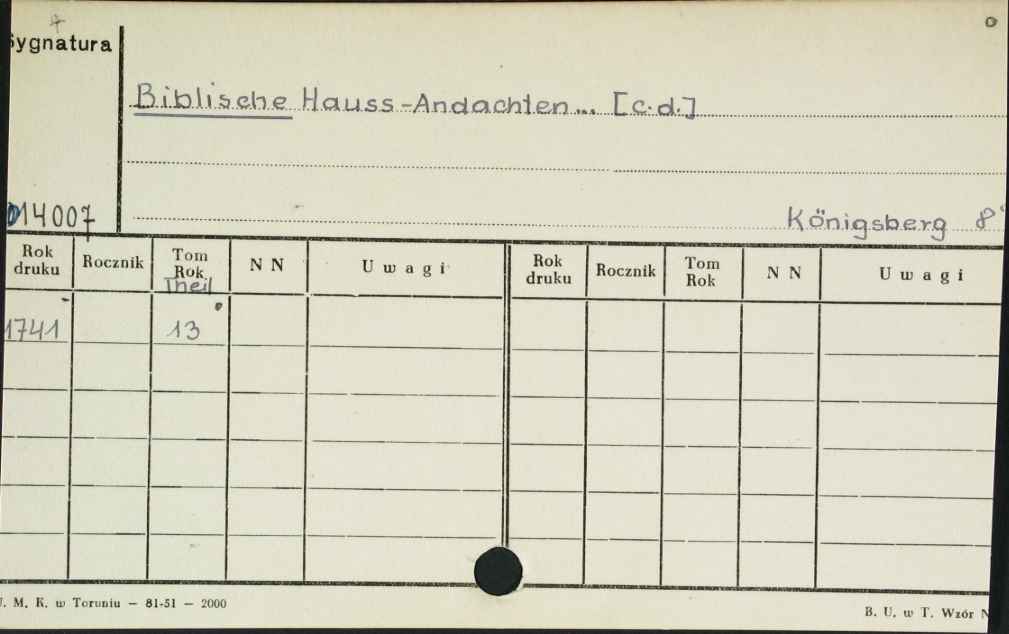 Sygnatura
Biblische Hauss-Andachten... [c.d.]
014007
Königsberg 8°
Rok druku Rocznik Tom Rok Theil N N Uwagi Rok druku Rocznik Tom Rok N N Uwagi
1741 13
U. M. K. w Toruniu — 81-51 — 2000
B. U. w T. Wzór N